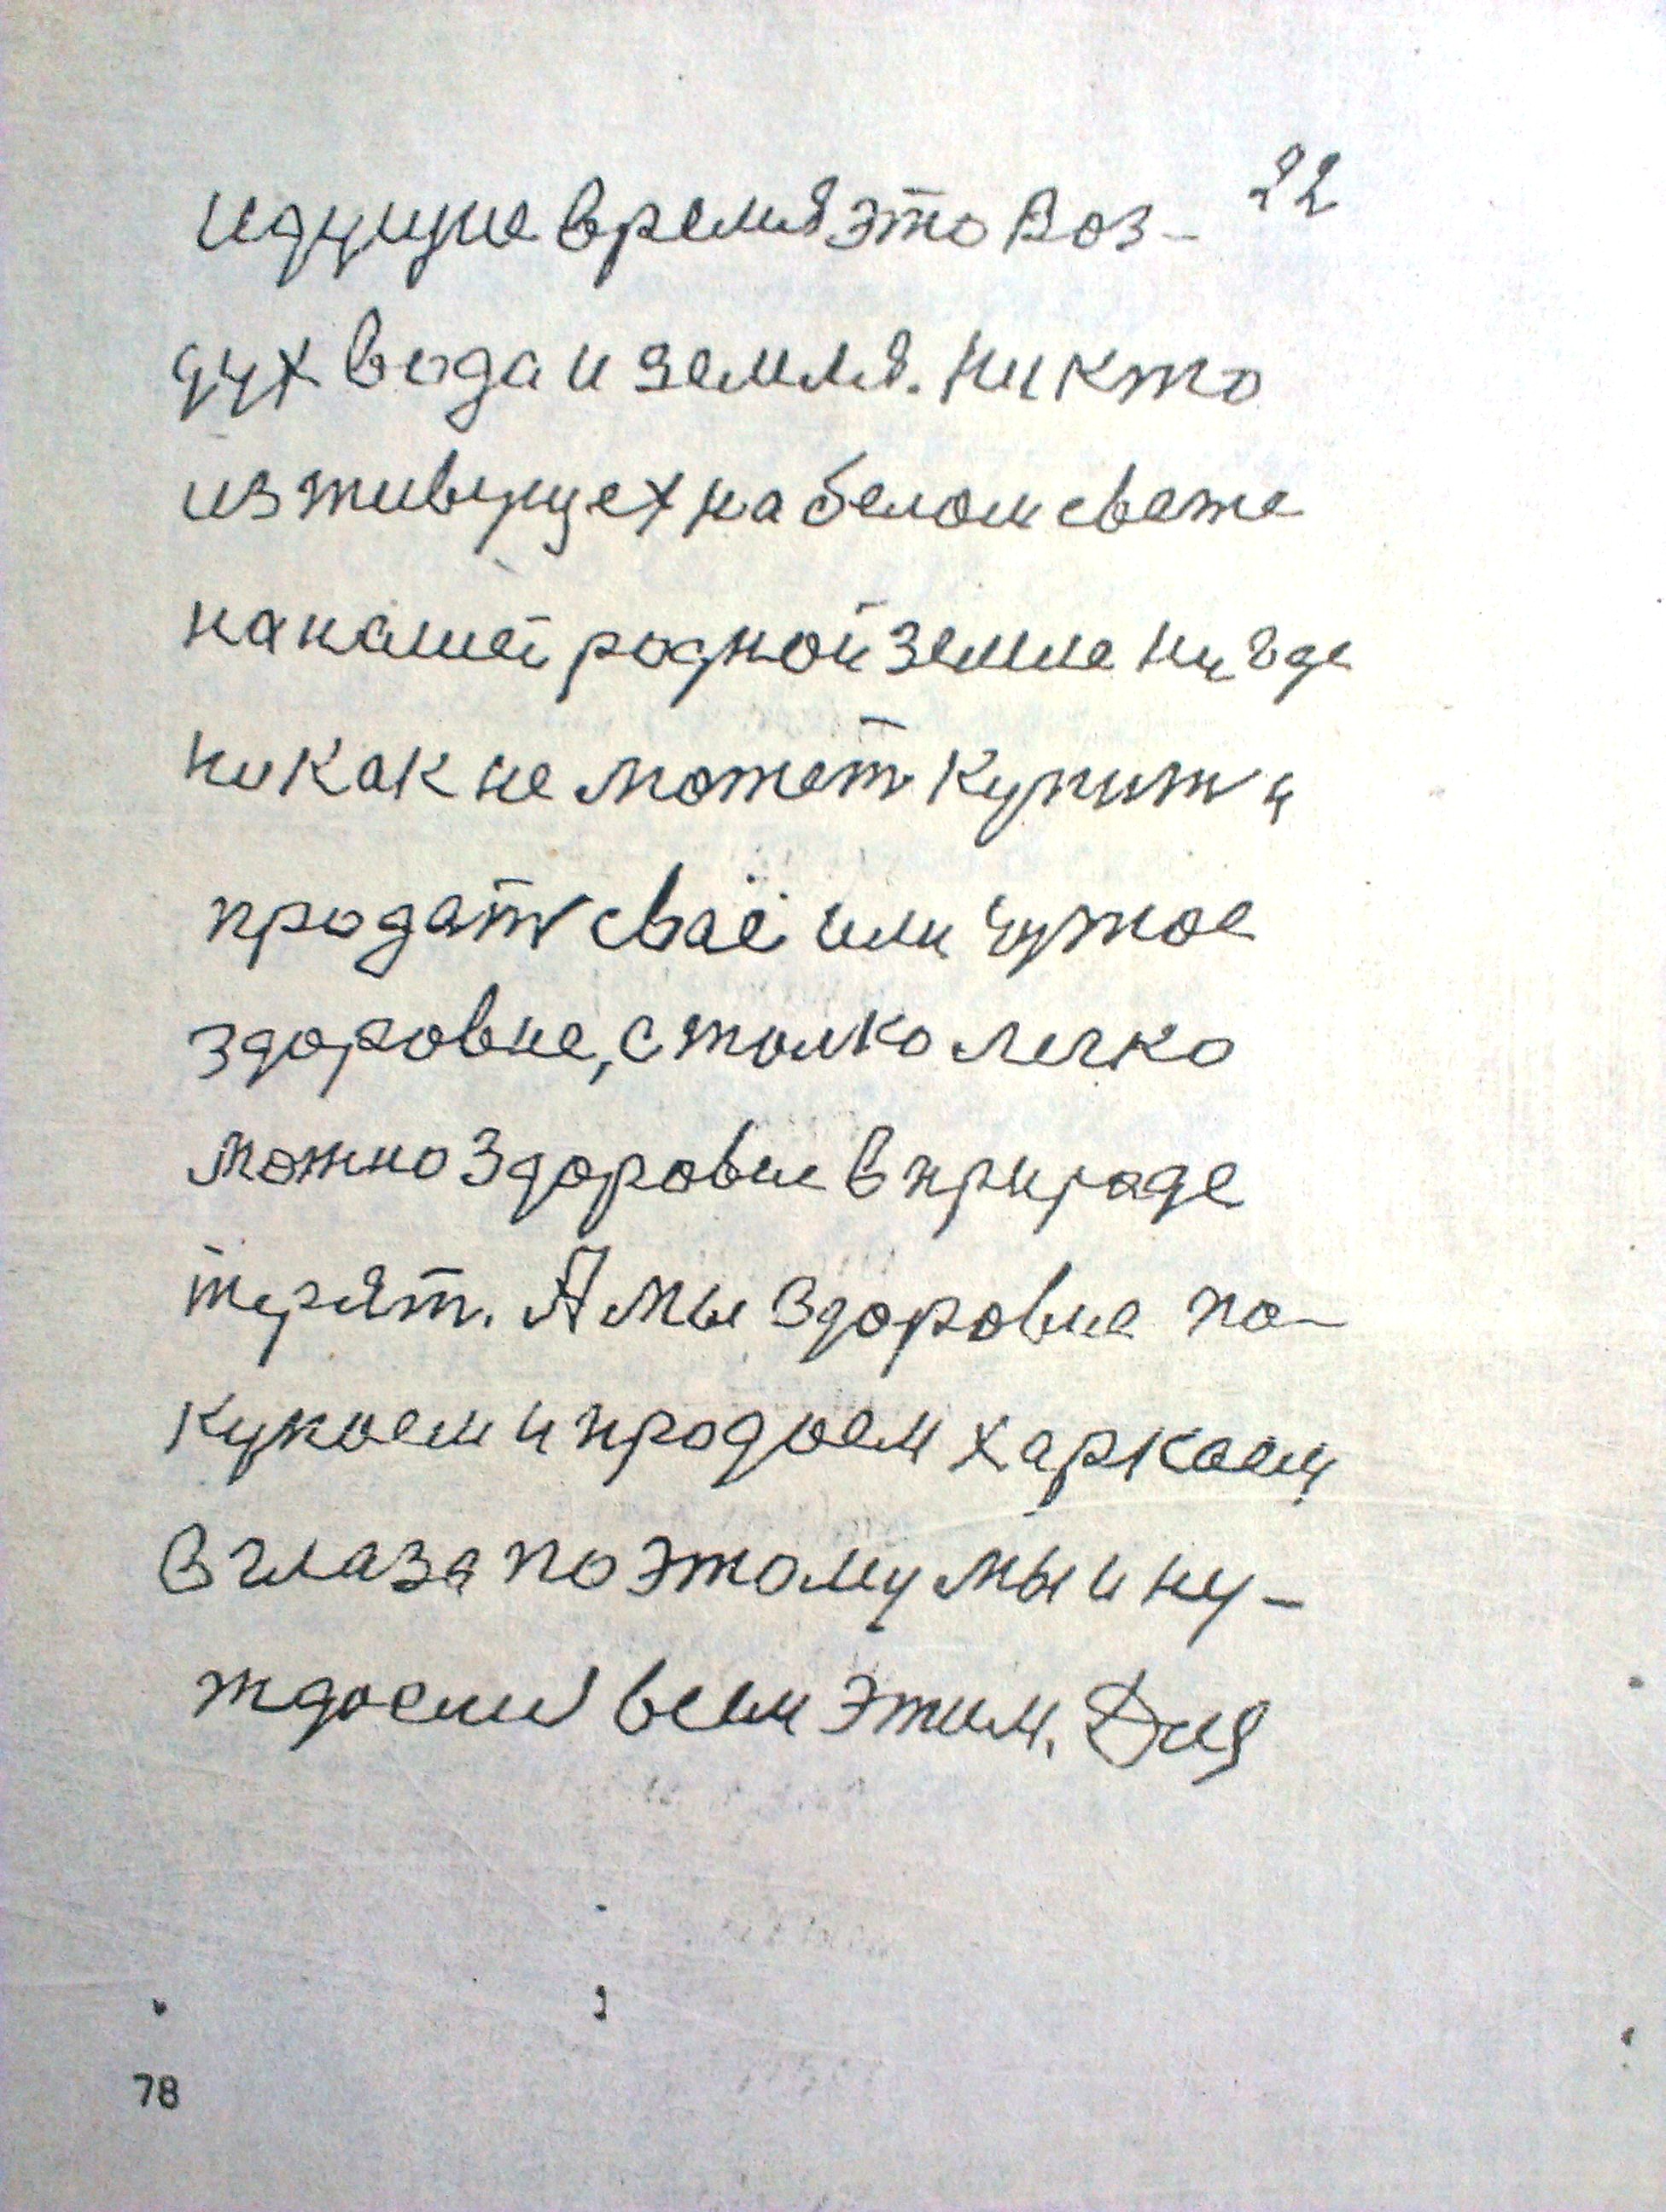 22
идущие время это Воз-
дух вода и земля. Никто
из живущех на белом свете
на нашей родной земле ни где
ни как не может купит и
продат сваё или чужое
здоровие, столко легко
можно здоровие в природе
терят. А мы здоровие по-
купоем и продоем харкаем
в глаза поэтому мы и ну-
ждоемся всем этим. Для
78